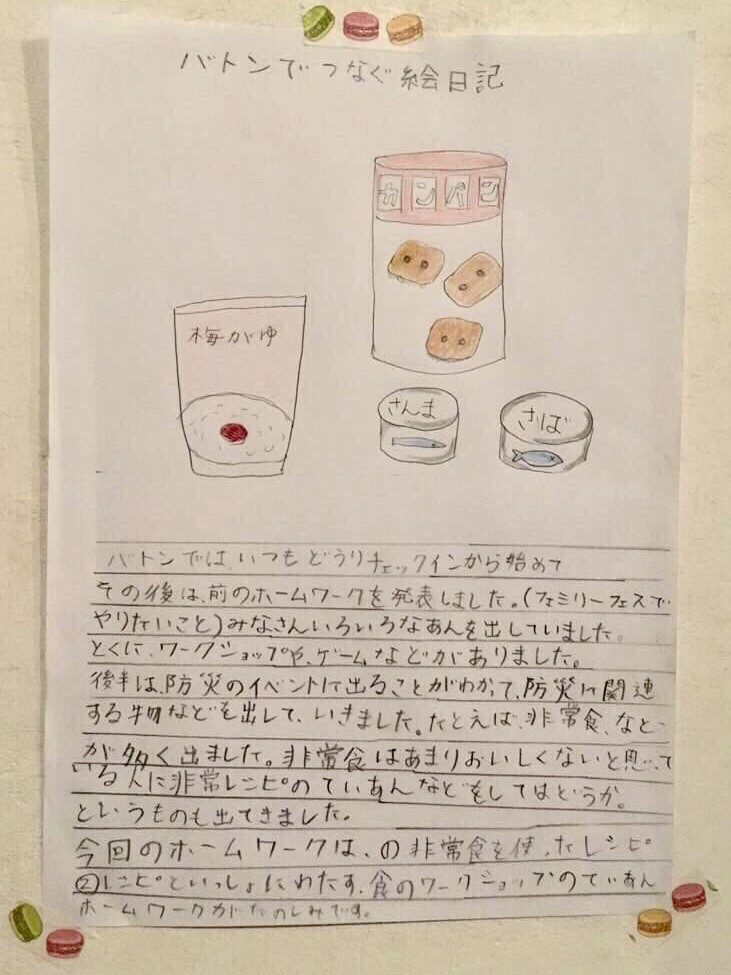 バトンでつなぐ絵日記
カンパン
梅がゆ
さんま
さば
バトンでは、いつもどうりチェックインから始めて
その後は、前のホームワークを発表しました。(フェミリーフェスで
やりたいこと)みなさんいろいろなあんを出していました。
とくに、ワークショップや、ゲームなどがありました。
後半は、防災のイベントに出ることがわかって、防災に関連
する物などを出して、いきました。たとえば、非常食、など
が多く出ました。非常食はあまりおいしくないと思って
いる人に非常レシピのていあんなどをしてはどうか。
というものも出てきました。
今回のホームワークは、の非常食を使ったレシピ
②レシピといっしょにわたす、食のワークショップのていあん
ホームワークがたのしみです。